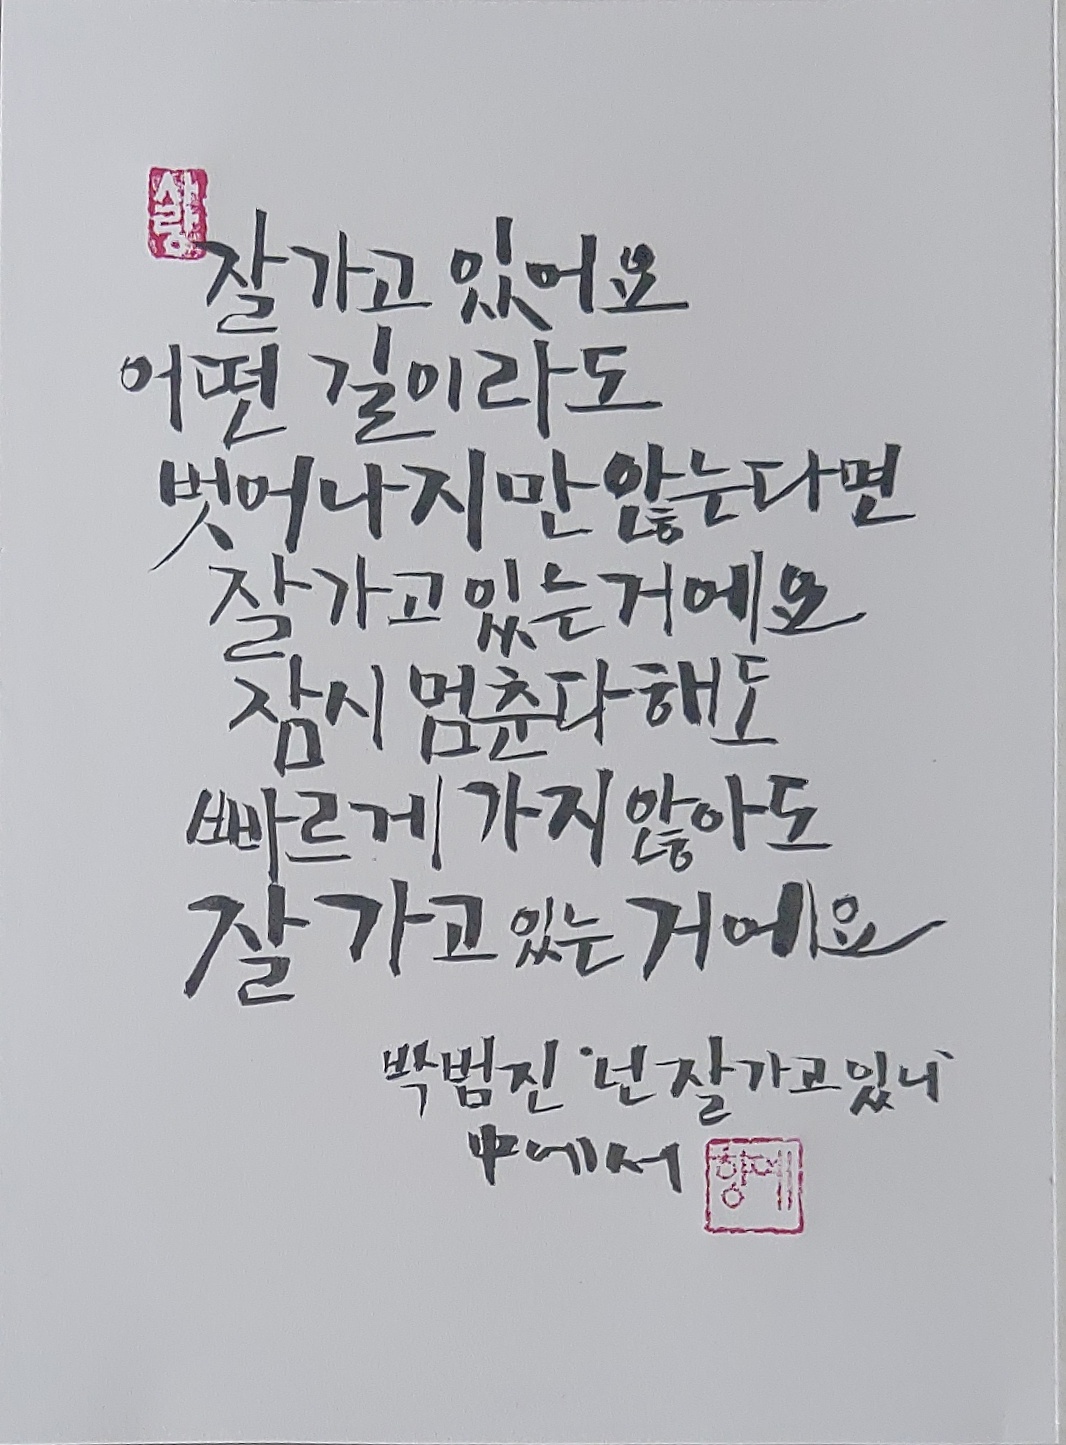 사랑
잘 가고 있어요
어떤 길이라도
벗어나지만 않는다면
잘 가고 있는 거에요
잠시 멈춘다 해도
빠르게 가지 않아도
잘 가고 있는 거에요
박범진 '넌 잘 가고 있니'
中에서